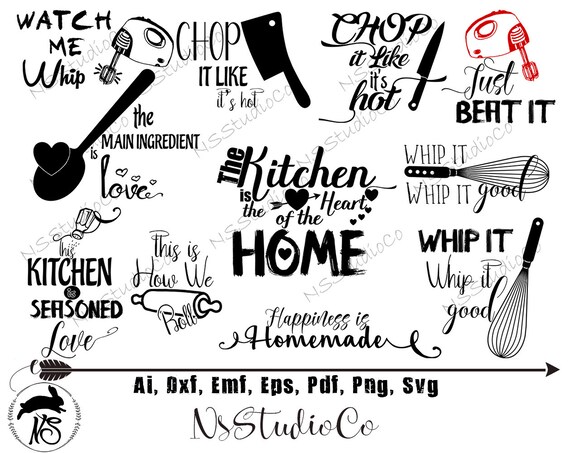 WATCH
ME
Whip
CHOP
IT LIKE
it's hot
CHOP
it Like
it's
hot
Just
BEAT IT
the
MAIN INGREDIENT
is
love
The
Kitchen
is the
Heart
of the
HOME
WHIP IT
WHIP IT good
WHIP IT
Whip it
good
This
KITCHEN
is
SEASONED
Love
This is
How We
Roll
Happiness is
Homemade
Ai, Dxf, Emf, Eps, Pdf, Png, Svg
NS
NsStudioCo
NSStudioCo
NSStudioCo
NSStudioCo
NSStudioCo
NSStudioCo
NSStudioCo